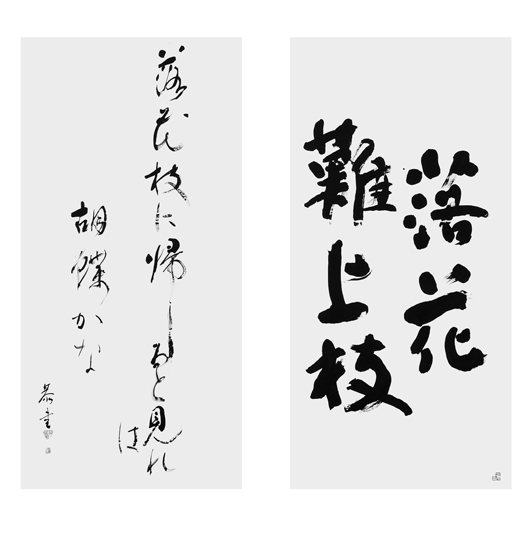 落花
難上枝
落花枝に帰ると見れ
は
胡蝶かな